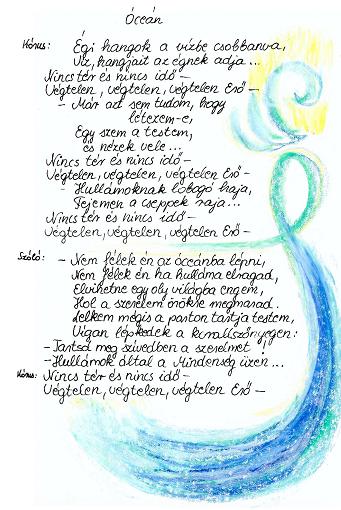 Óceán
Kórus: Égi hangok a vízbe csobbanva,
Víz, hangjait az égnek adja...
Nincs tér és nincs idő –
Végtelen, végtelen, végtelen Erő –
– Már azt sem tudom, hogy
létezem-e,
Egy szem a testem,
és nézek vele...
Nincs tér és nincs idő –
Végtelen, végtelen, végtelen Erő –
– Hullámoknak lobogó haja,
Fejemen a cseppek raja...
Nincs tér és nincs idő –
Végtelen, végtelen, végtelen Erő –
Szóló: – Nem félek én az óceánba lépni,
Nem félek én ha hulláma elragad,
Elvihetne egy oly világba engem,
Hol a szerelem örökre megmarad.
Lelkem mégis a parton tartja testem,
Vígan lépkedek a korallszőnyegen:
– Tartsd meg szívedben a szerelmet!
– Hullámok által a Mindenség üzen...
Kórus: Nincs tér és nincs idő –
Végtelen, végtelen, végtelen Erő –